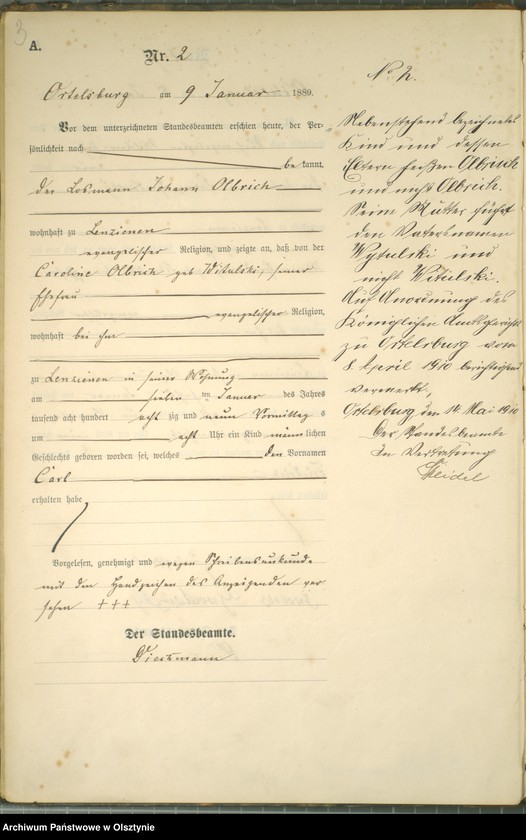 3
A.
Nr. 2
Ortelsburg am 9 Januar 1889.
Vor dem unterzeichneten Standesbeamten erschien heute, der Per-
sönlichkeit nach
be kannt,
der Losmann Johann Olbrich
wohnhaft zu Lenzienen
evangelischer Religion, und zeigte an, daß von der
Caroline Olbrich geb Witulski, seiner
Ehefrau
evangelischer Religion,
wohnhaft bei ihm
zu Lenzienen in seiner Wohnung
am sieben ten Januar des Jahres
tausend acht hundert acht zig und neun Vormittag s
um acht Uhr ein Kind männ lichen
Geschlechts geboren worden sei, welches den Vornamen
Carl
erhalten habe
Vorgelesen, genehmigt und wegen Schreibensunkunde
mit den Handzeichen des Anzeigenden ver
sehen +++
Der Standesbeamte.
No 2.
Nebenstehend bezeichnetes
Kind und dessen
Eltern heißen
und nicht Olbrich.
Seine Mutter führt
den Vatersnamen
Wytulski und
nicht Witulski.
Auf Anordnung des
Königlichen Amtsgerichts
zu Ortelsburg vom
8 April 1910 berichtigend
vermerkt,
Ortelsburg den 14 Mai 1910
Der Standesbeamte
In Vertretung
Archiwum Państwowe w Olsztynie